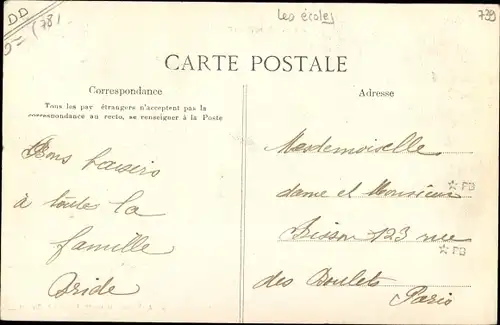 DD
(78)
Les écoles
739
CARTE POSTALE
Correspondance
Tous les pay étrangers n'acceptent pas la
correspondance au recto, se renseigner à la Poste
Adresse
Bons baisers
à toute la
famille
Bride
Mesdemoiselle
dame et Monsieur
Bisson 123 rue
des Boulets
Paris
☆ FB
☆ FB